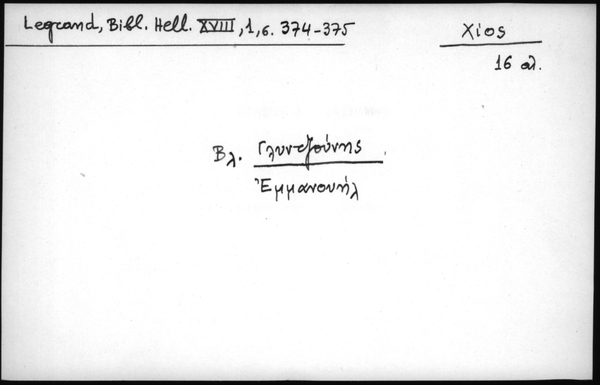 Legrand, Bibl. Hell. XVIII, 1, σ. 374-375
Χίος
16 αι.
Βλ. Γλυντζούνης
Ἐμμανουήλ